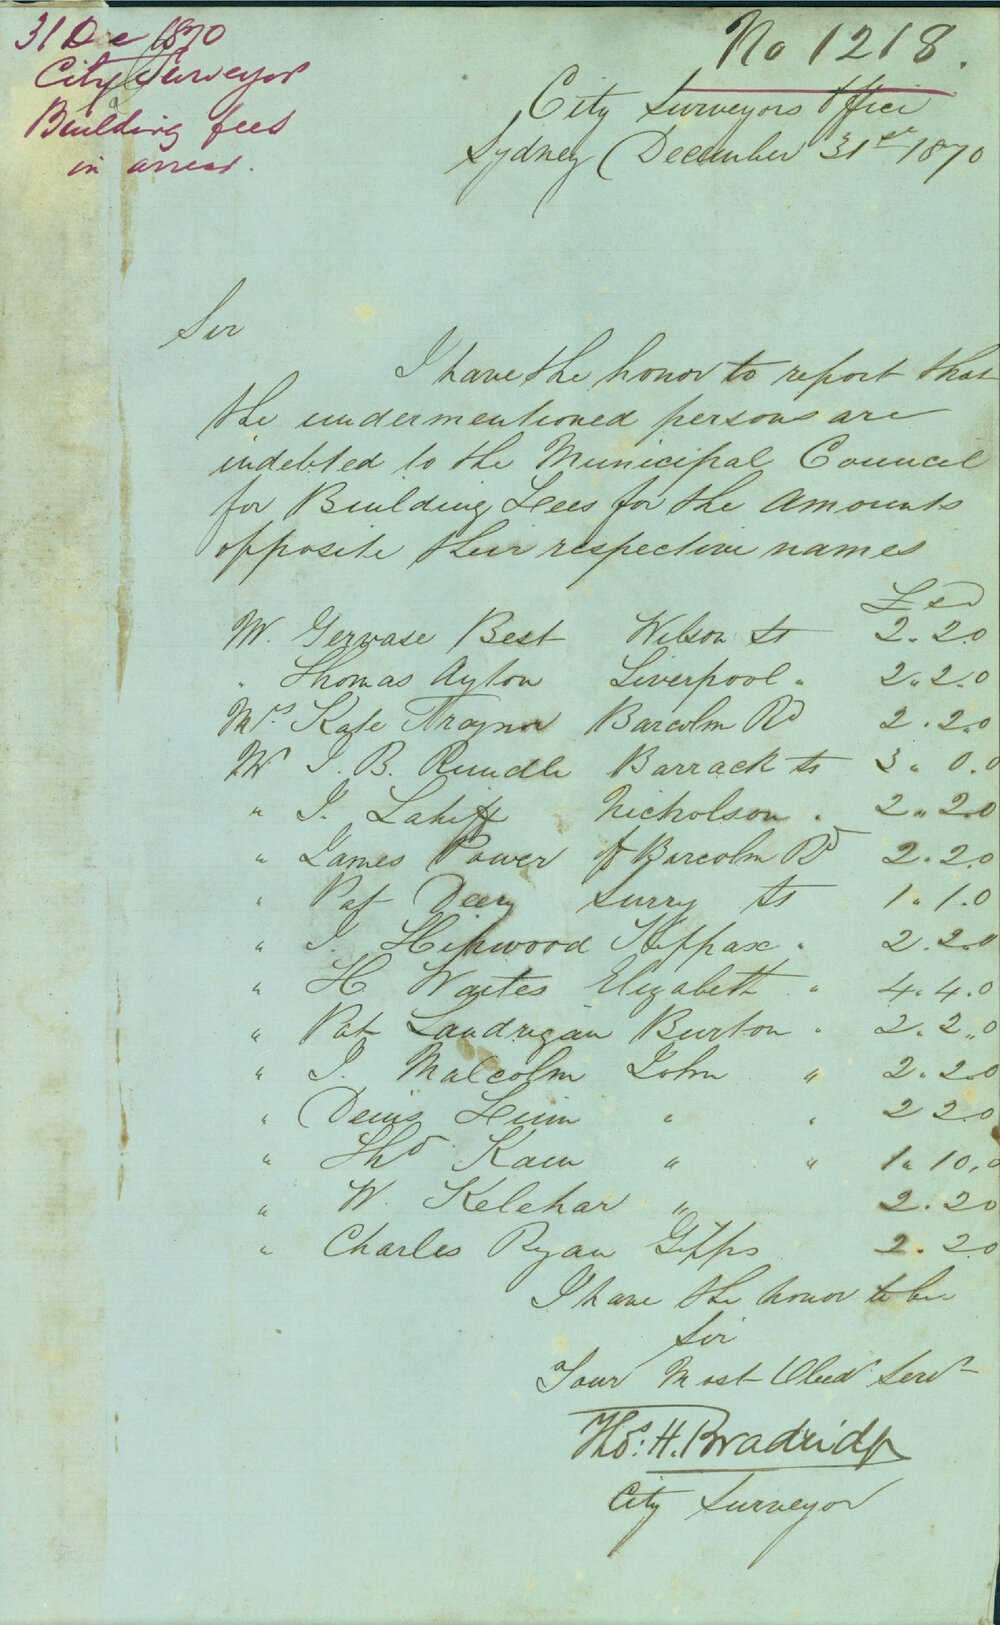 31 Dec 1870
City Surveyor
Building fees
in arrear.
No 1218.
City Surveyors Office
Sydney December 31st 1870
Sir
I have the honor to report that
the undermentioned persons are
indebted to the Municipal Council
for Building Fees for the Amounts
opposite their respective names
£ s d
Mr. Gervase Best Wilson St 2.2.0
" Thomas Ayton Liverpool " 2.2.0
Mrs Kate Traynor Barcolm Rd 2.2.0
Mr J. B. Rundle Barrack St 3.0.0
" J. Lahiff Nicholson " 2.2.0
" James Power Barcolm Rd 2.2.0
" Pat Deery Surry St 1.1.0
" J. Hepwood Hippax " 2.2.0
" H Waites Elizabeth " 4.4.0
" Pat Landrigan Burton " 2.2.0
" J. Malcolm John " 2.2.0
" Denis " " 2 2.0
" Thos Kain " " 1.10.0
" W. Kelehar " 2.2.0
" Charles Ryan Gipps 2.2.0
I have the honor to be
Sir
Your Most Obed Servt
Thos. H. Bradridge
City Surveyor